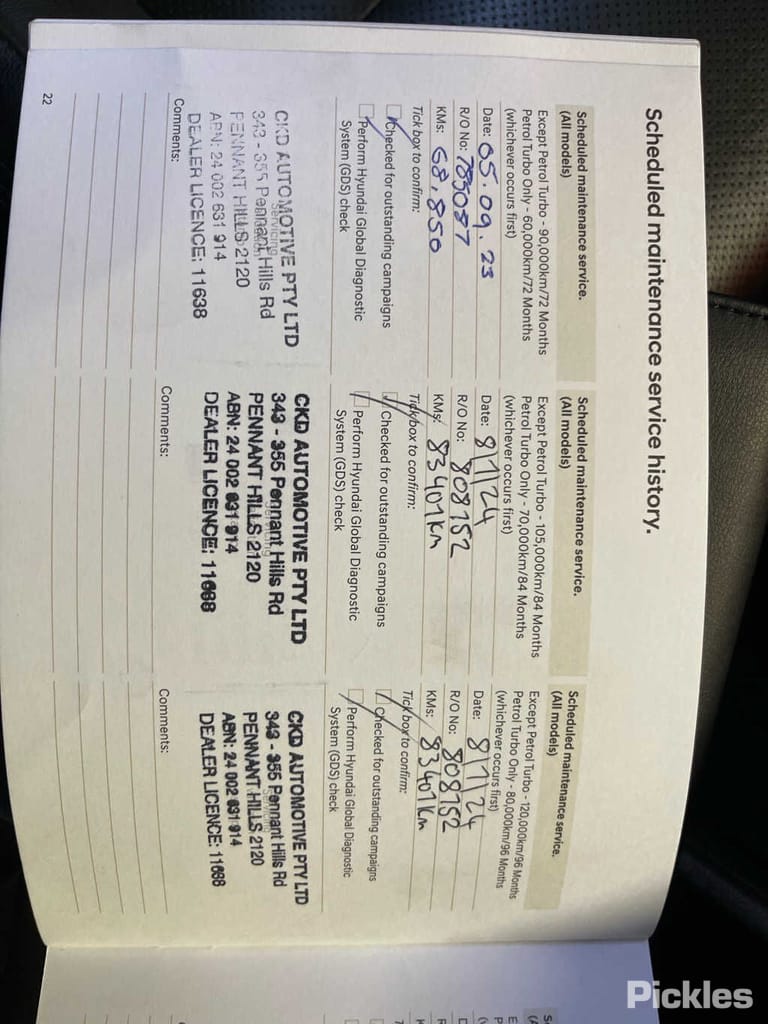 Scheduled maintenance service history.
Scheduled maintenance service.
(All models)
Except Petrol Turbo - 90,000km/72 Months
Petrol Turbo Only - 60,000km/72 Months
(whichever occurs first)
Date: 05.09.23
R/O No: 785087
KMs: 68,850
Tick box to confirm:
Checked for outstanding campaigns
Perform Hyundai Global Diagnostic
System (GDS) check
CKD AUTOMOTIVE PTY LTD
343 - 355 Pennant Hills Rd
PENNANT HILLS 2120
ABN: 24 002 631 914
DEALER LICENCE: 11638
Comments:
Scheduled maintenance service.
(All models)
Except Petrol Turbo - 105,000km/84 Months
Petrol Turbo Only - 70,000km/84 Months
(whichever occurs first)
Date: 8/1/24
R/O No: 808152
KMs: 83401km
Tick box to confirm:
Checked for outstanding campaigns
Perform Hyundai Global Diagnostic
System (GDS) check
CKD AUTOMOTIVE PTY LTD
343 - 355 Pennant Hills Rd
PENNANT HILLS 2120
ABN: 24 002 631 914
DEALER LICENCE: 11638
Comments:
Scheduled maintenance service.
(All models)
Except Petrol Turbo - 120,000km/96 Months
Petrol Turbo Only - 80,000km/96 Months
(whichever occurs first)
Date: 8/1/24
R/O No: 808152
KMs: 83401km
Tick box to confirm:
Checked for outstanding campaigns
Perform Hyundai Global Diagnostic
System (GDS) check
CKD AUTOMOTIVE PTY LTD
343 - 355 Pennant Hills Rd
PENNANT HILLS 2120
ABN: 24 002 631 914
DEALER LICENCE: 11638
Comments:
22
Pickles